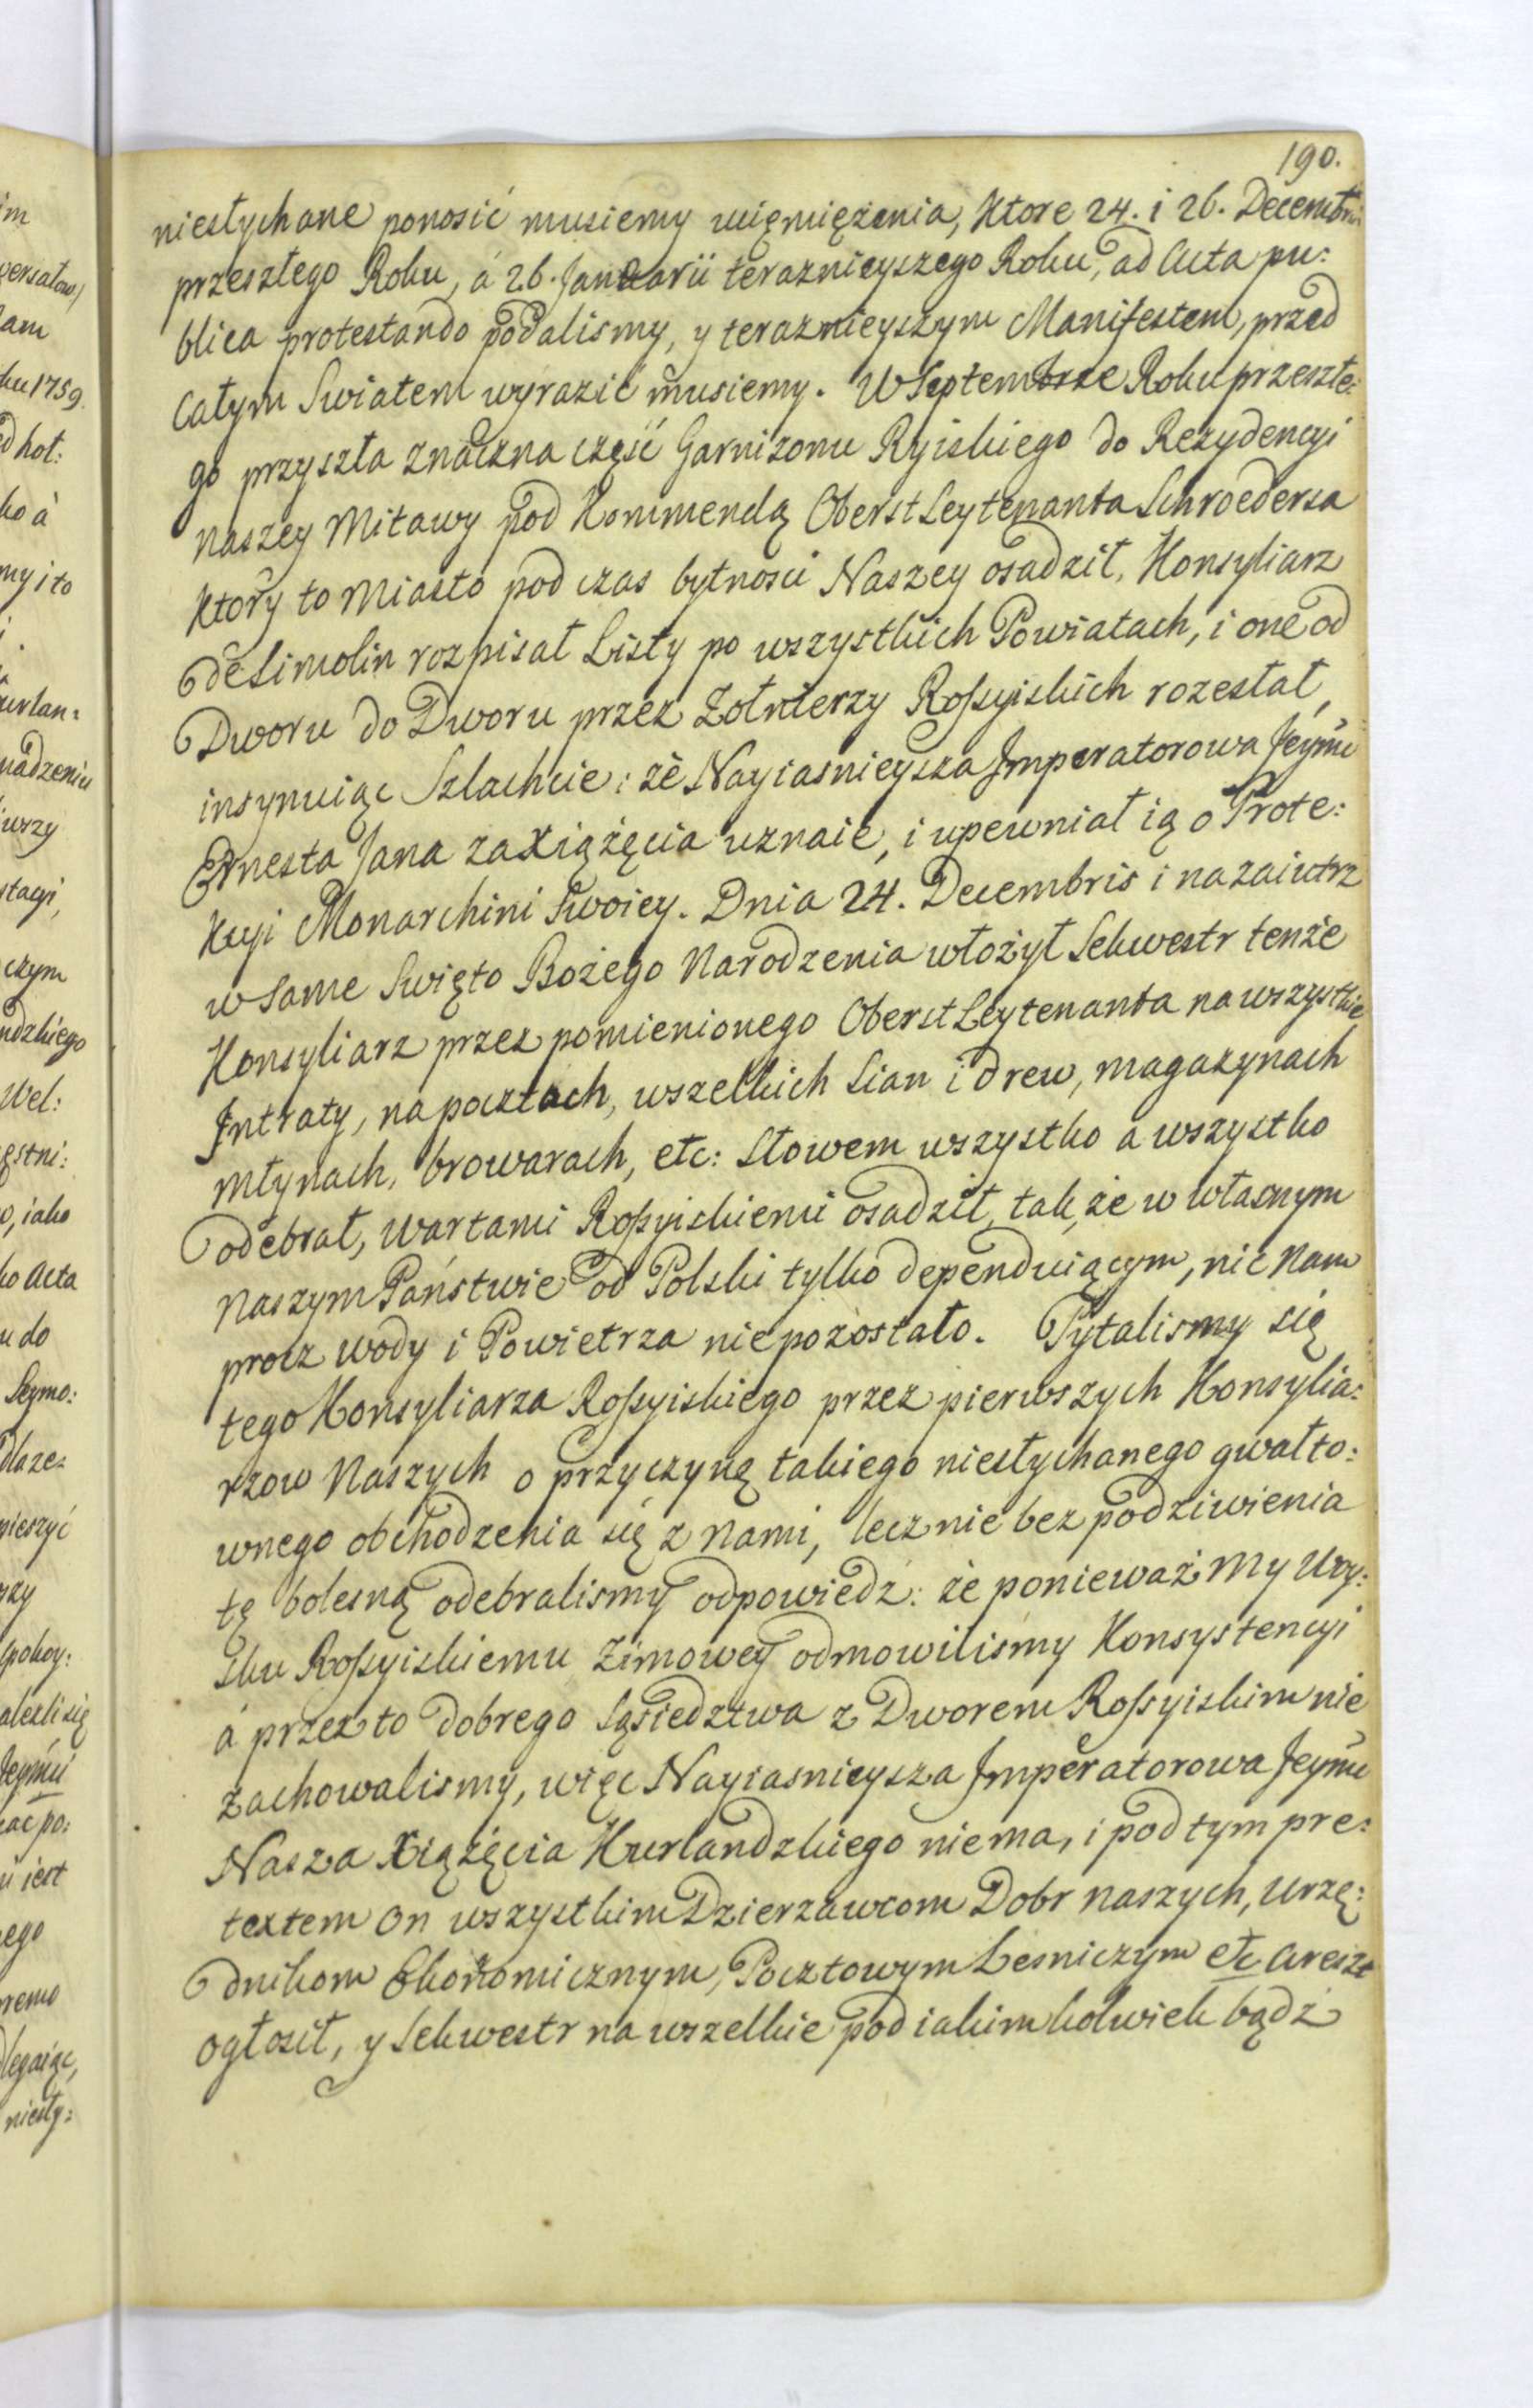 190.
niesłychane ponosić musiemy ucięmiężenia, Ktore 24. i 26. Decembris
przeszłego Roku, á 26. Januarii teraznieyszego Roku, ad Acta pu:
blica protestando podalismy, y teraznieyszym Manifestem, przed
całym Swiatem wyrazić musiemy. W Septembrze Roku przeszłe:
go przyszła znaczna część Garnizonu Ryiskiego do Rezydencyi
naszey Mitawy pod Kommendą Oberst Leytenanta Schroedersa
Ktory to Miasto pod czas bytnosci Naszey osadził, Konsyliarz
de Simolin rozpisał Listy po wszystkich Powiatach, i one od
Dworu do Dworu przez Zołnierzy Roßyiskich rozesłał,
insynuiąc Szlachcie: że Nayiasnieysza Imperatorowa Jeymć
Ernesta Jana za Xiążęcia uznaie, i upewniał ią o Prote:
kcyi Monarchini Swoiey. Dnia 24. Decembris i nazaiutrz
w same Swięto Bożego Narodzenia włożył Sekwestr tenże
Konsyliarz przez pomienionego Oberst Leytenanta na wszystkie
Intraty, na pocztach, wszelkich Sian i drew, magazynach
młynach, browarach, etc: Słowem wszystko a wszystko
odebrał, Wartami Roßyiskiemi osadził, tak, że w własnym
Naszym Państwie od Polski tylko dependuiącym, nic Nam
procz wody i Powietrza niepozostało. Pytalismy się
tego Konsyliarza Roßyiskiego przez pierwszych Konsylia:
rzow Naszych o przyczynę takiego niesłychanego gwałto:
wnego obchodzenia się z Nami, lecz nie bez podziwienia
tę bolesną odebralismy odpowiedź: że ponieważ My Woy:
sku Roßyiskiemu Zimowey odmowiliśmy Konsystencyi
á przez to dobrego Sąsiedztwa z Dworem Roßyiskim nie
zachowalismy, więc Nayiasnieysza Imperatorowa Jeymć
Nasza Xiążęcia Kurlandzkiego niema, i pod tym pre:
textem on wszystkim Dzierzawcom Dobr naszych, Urzę:
dnikom Ekonomicznym, Pocztowym Lesniczym etc Areszt
ogłosił, y Sekwestr na wszelkie pod iakimkolwiek bądź